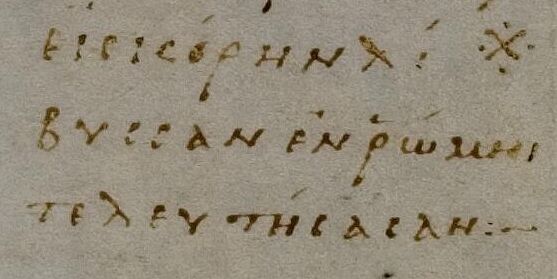 εἰς κόρην λί ※
βυσσαν ἐν ῥώμηι
τελευτήσασαν:~